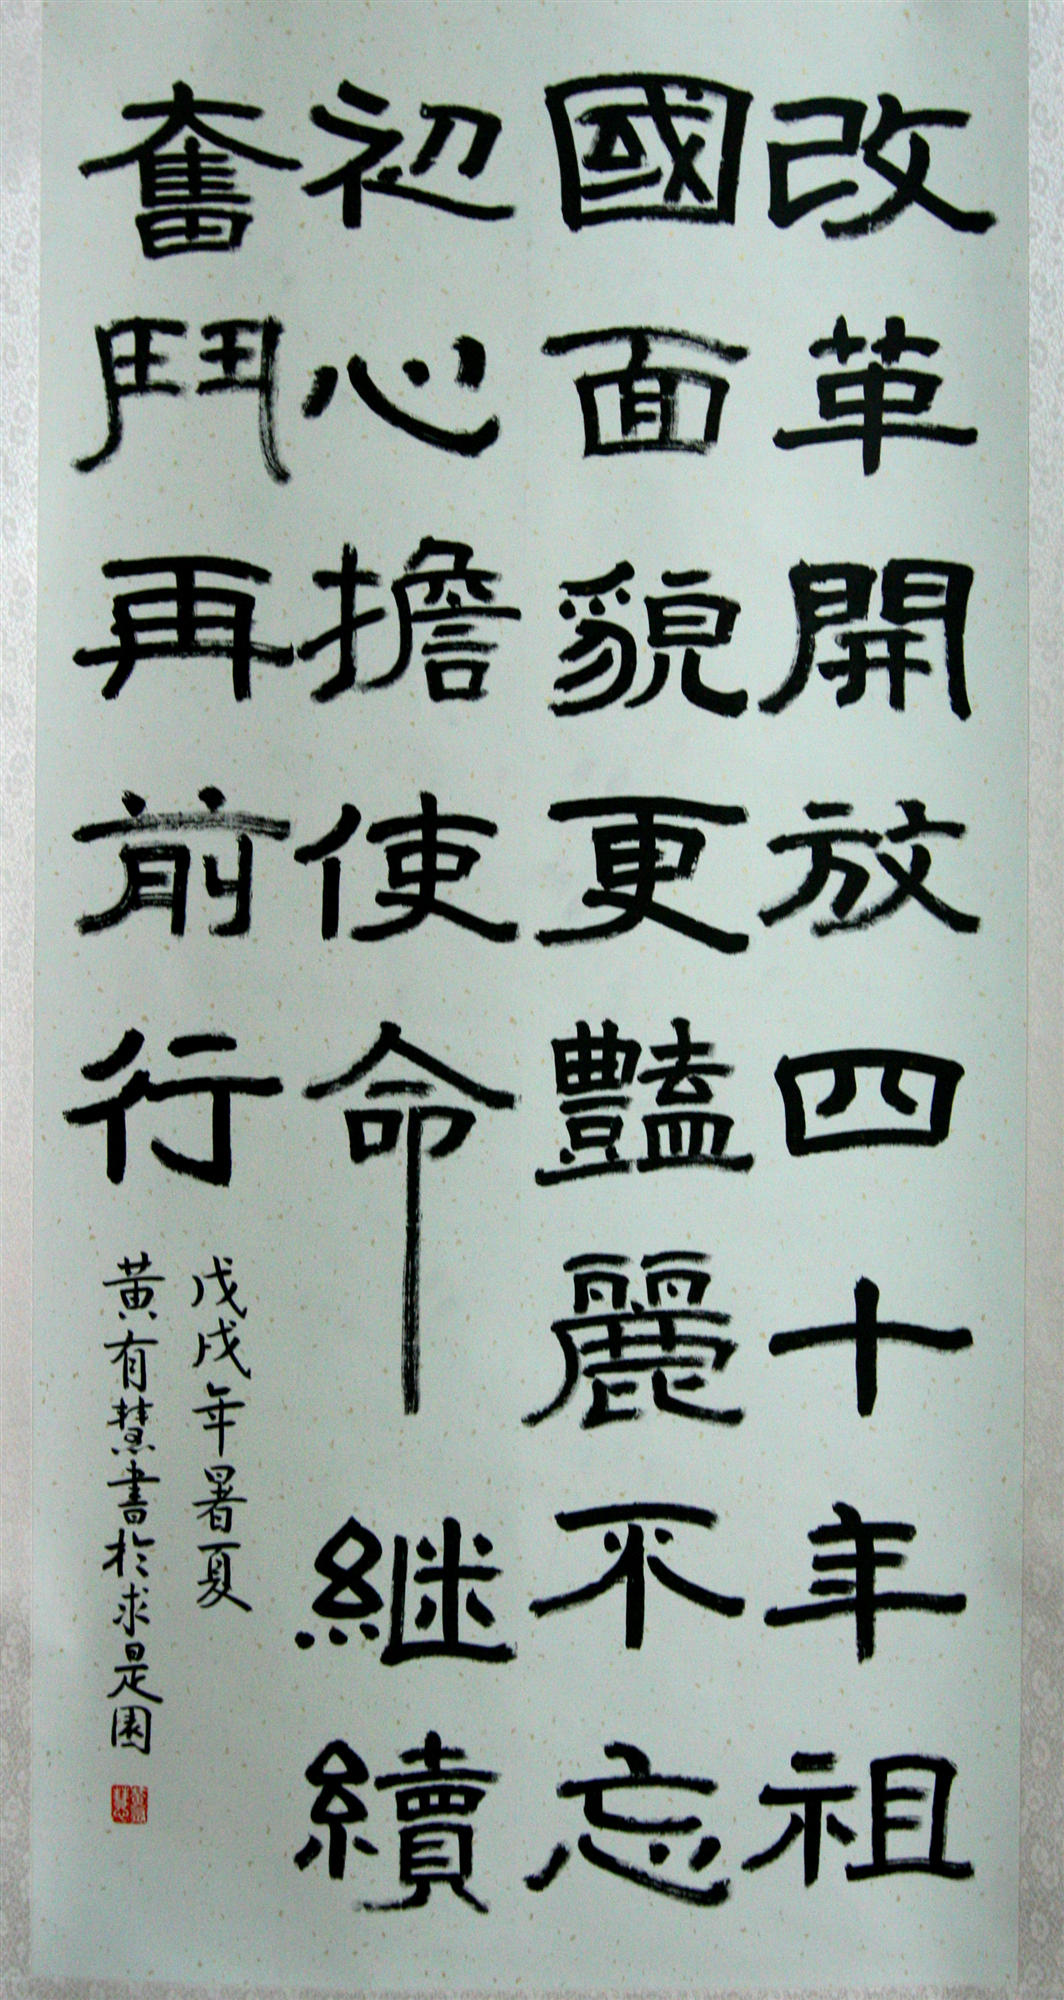 改革開放四十年祖
國面貌更豔麗不忘
初心擔使命继續
奮鬥再前行
戊戌年暑夏
黄有慧書於求是園